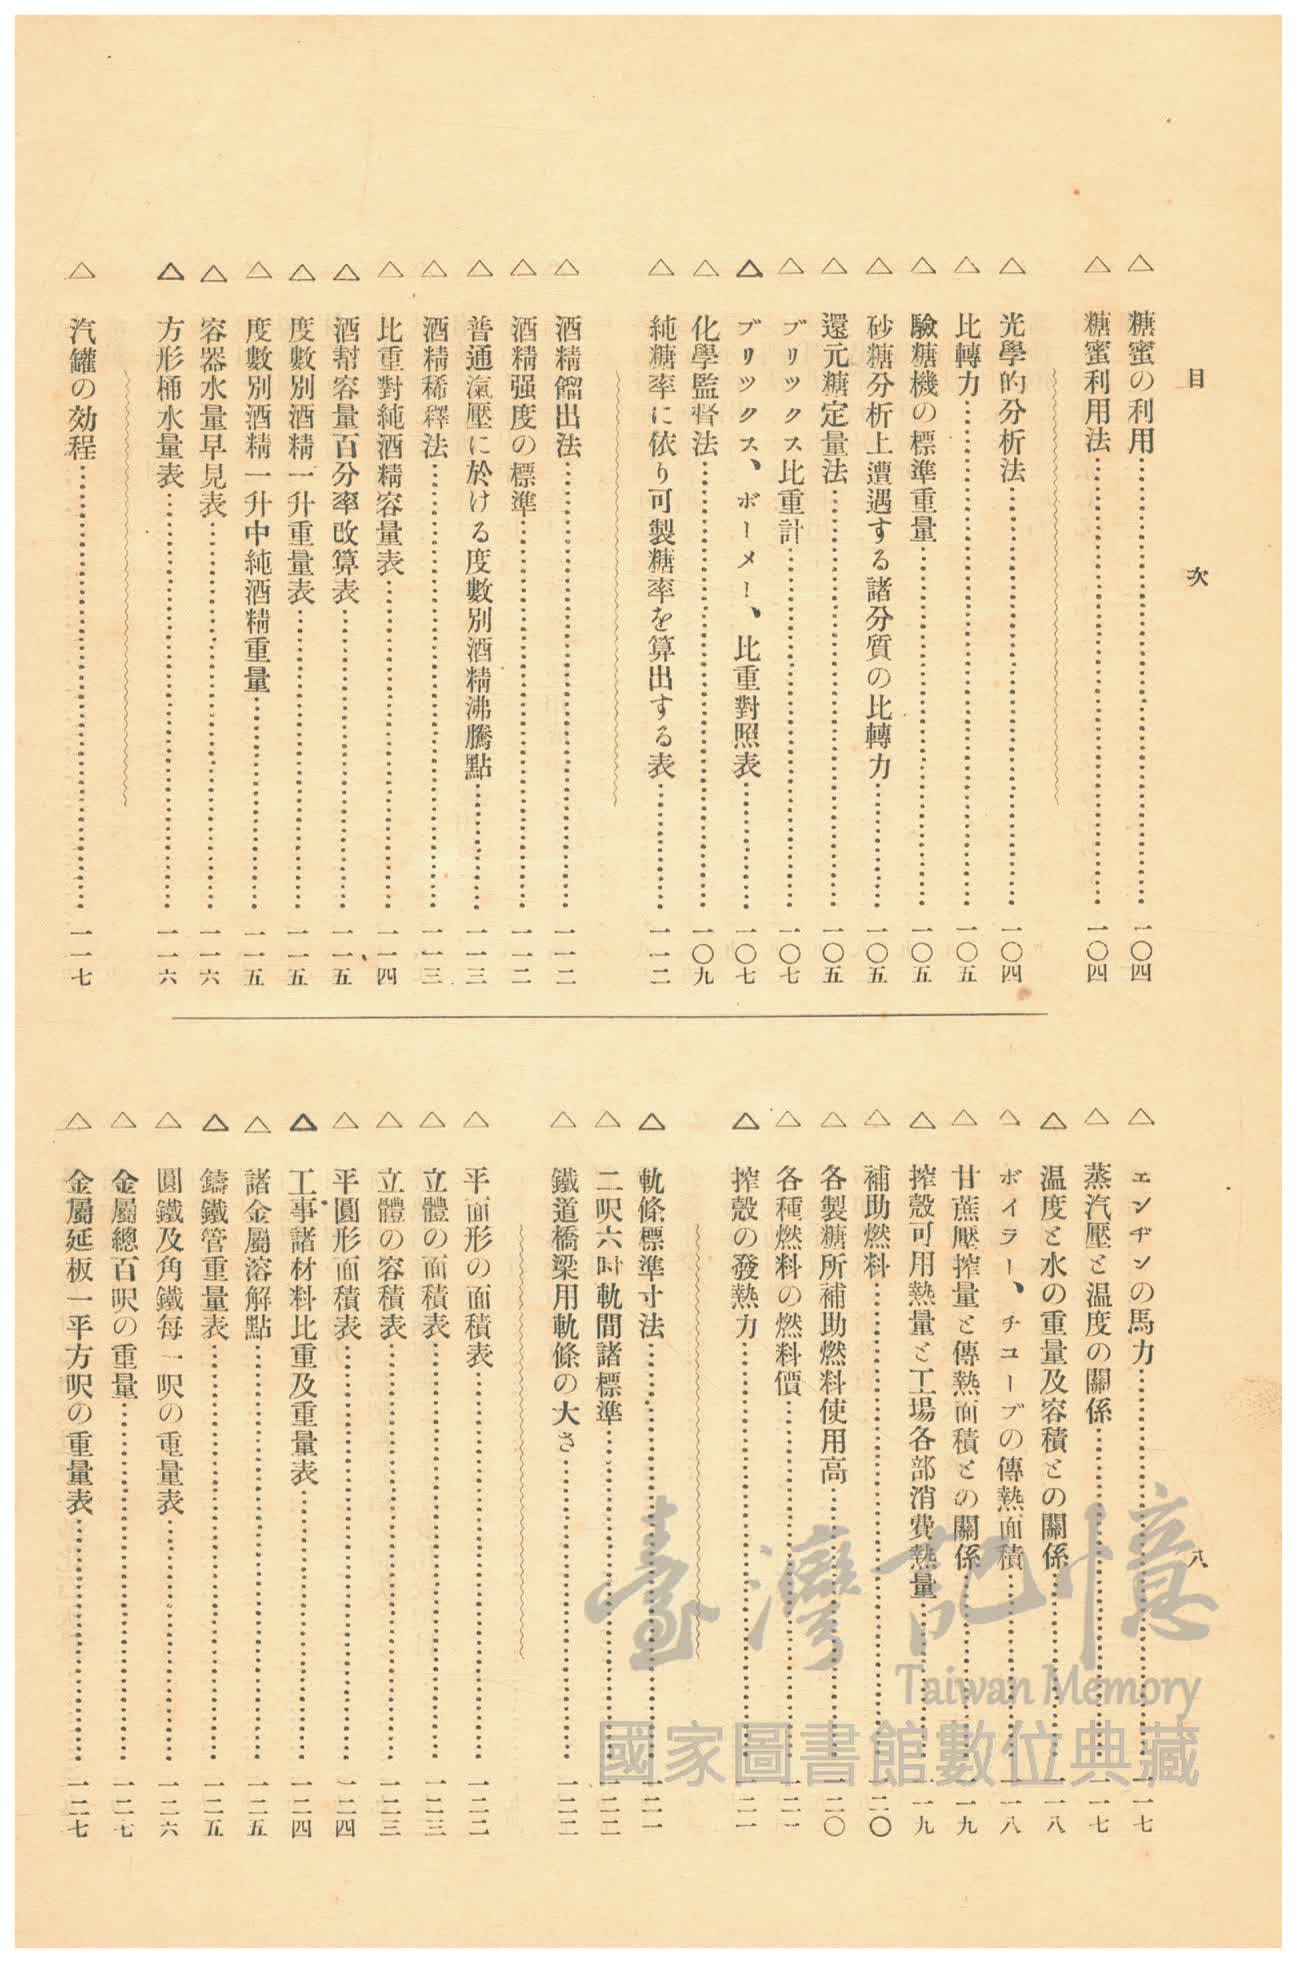 目次
八
△糖蜜の利用……一〇四
△糖蜜利用法……一〇四
△光學的分析法……一〇四
△比轉力……一〇五
△驗糖機の標準重量……一〇五
△砂糖分析上遭遇する諸分質の比轉力……一〇五
△還元糖定量法……一〇五
△ブリックス比重計……一〇七
△ブリックス、ボーメー、比重對照表……一〇七
△化學監督法……一〇九
△純糖率に依り可製糖率を算出する表……一一二
△酒精餾出法……一一二
△酒精强度の標準……一一二
△普通滊壓に於ける度數別酒精沸騰點……一一三
△酒精稀釋法……一一三
△比重對純酒精容量表……一一四
△酒幇容量百分率改算表……一一五
△度數別酒精一升重量表……一一五
△度數別酒精一升中純酒精重量……一一五
△容器水量早見表……一一六
△方形桶水量表……一一六
△汽罐の効程……一一七
△エンヂンの馬力……一一七
△蒸汽壓と温度の關係……一一七
△温度と水の重量及容積との關係……一一八
△ボイラー、チューブの傳熱面積……一一八
△甘蔗壓搾量と傳熱面積との關係……一一九
△搾殼可用熱量と工場各部消費熱量……一一九
△補助燃料……一二〇
△各製糖所補助燃料使用高……一二〇
△各種燃料の燃料價……一二一
△搾殼の發熱力……一二一
△軌條標準寸法……一二一
△二呎六吋軌間諸標準……一二二
△鐵道橋梁用軌條の大さ……一二二
△平面形の面積表……一二二
△立體の面積表……一二三
△立體の容積表……一二三
△平圓形面積表……一二四
△工事諸材料比重及重量表……一二四
△諸金屬溶解點……一二五
△鑄鐵管重量表……一二五
△圓鐵及角鐵每一呎の重量表……一二六
△金屬總百呎の重量……一二七
△金屬延板一平方呎の重量表……一二七
臺灣記憶
Taiwan Memory
國家圖書館數位典藏